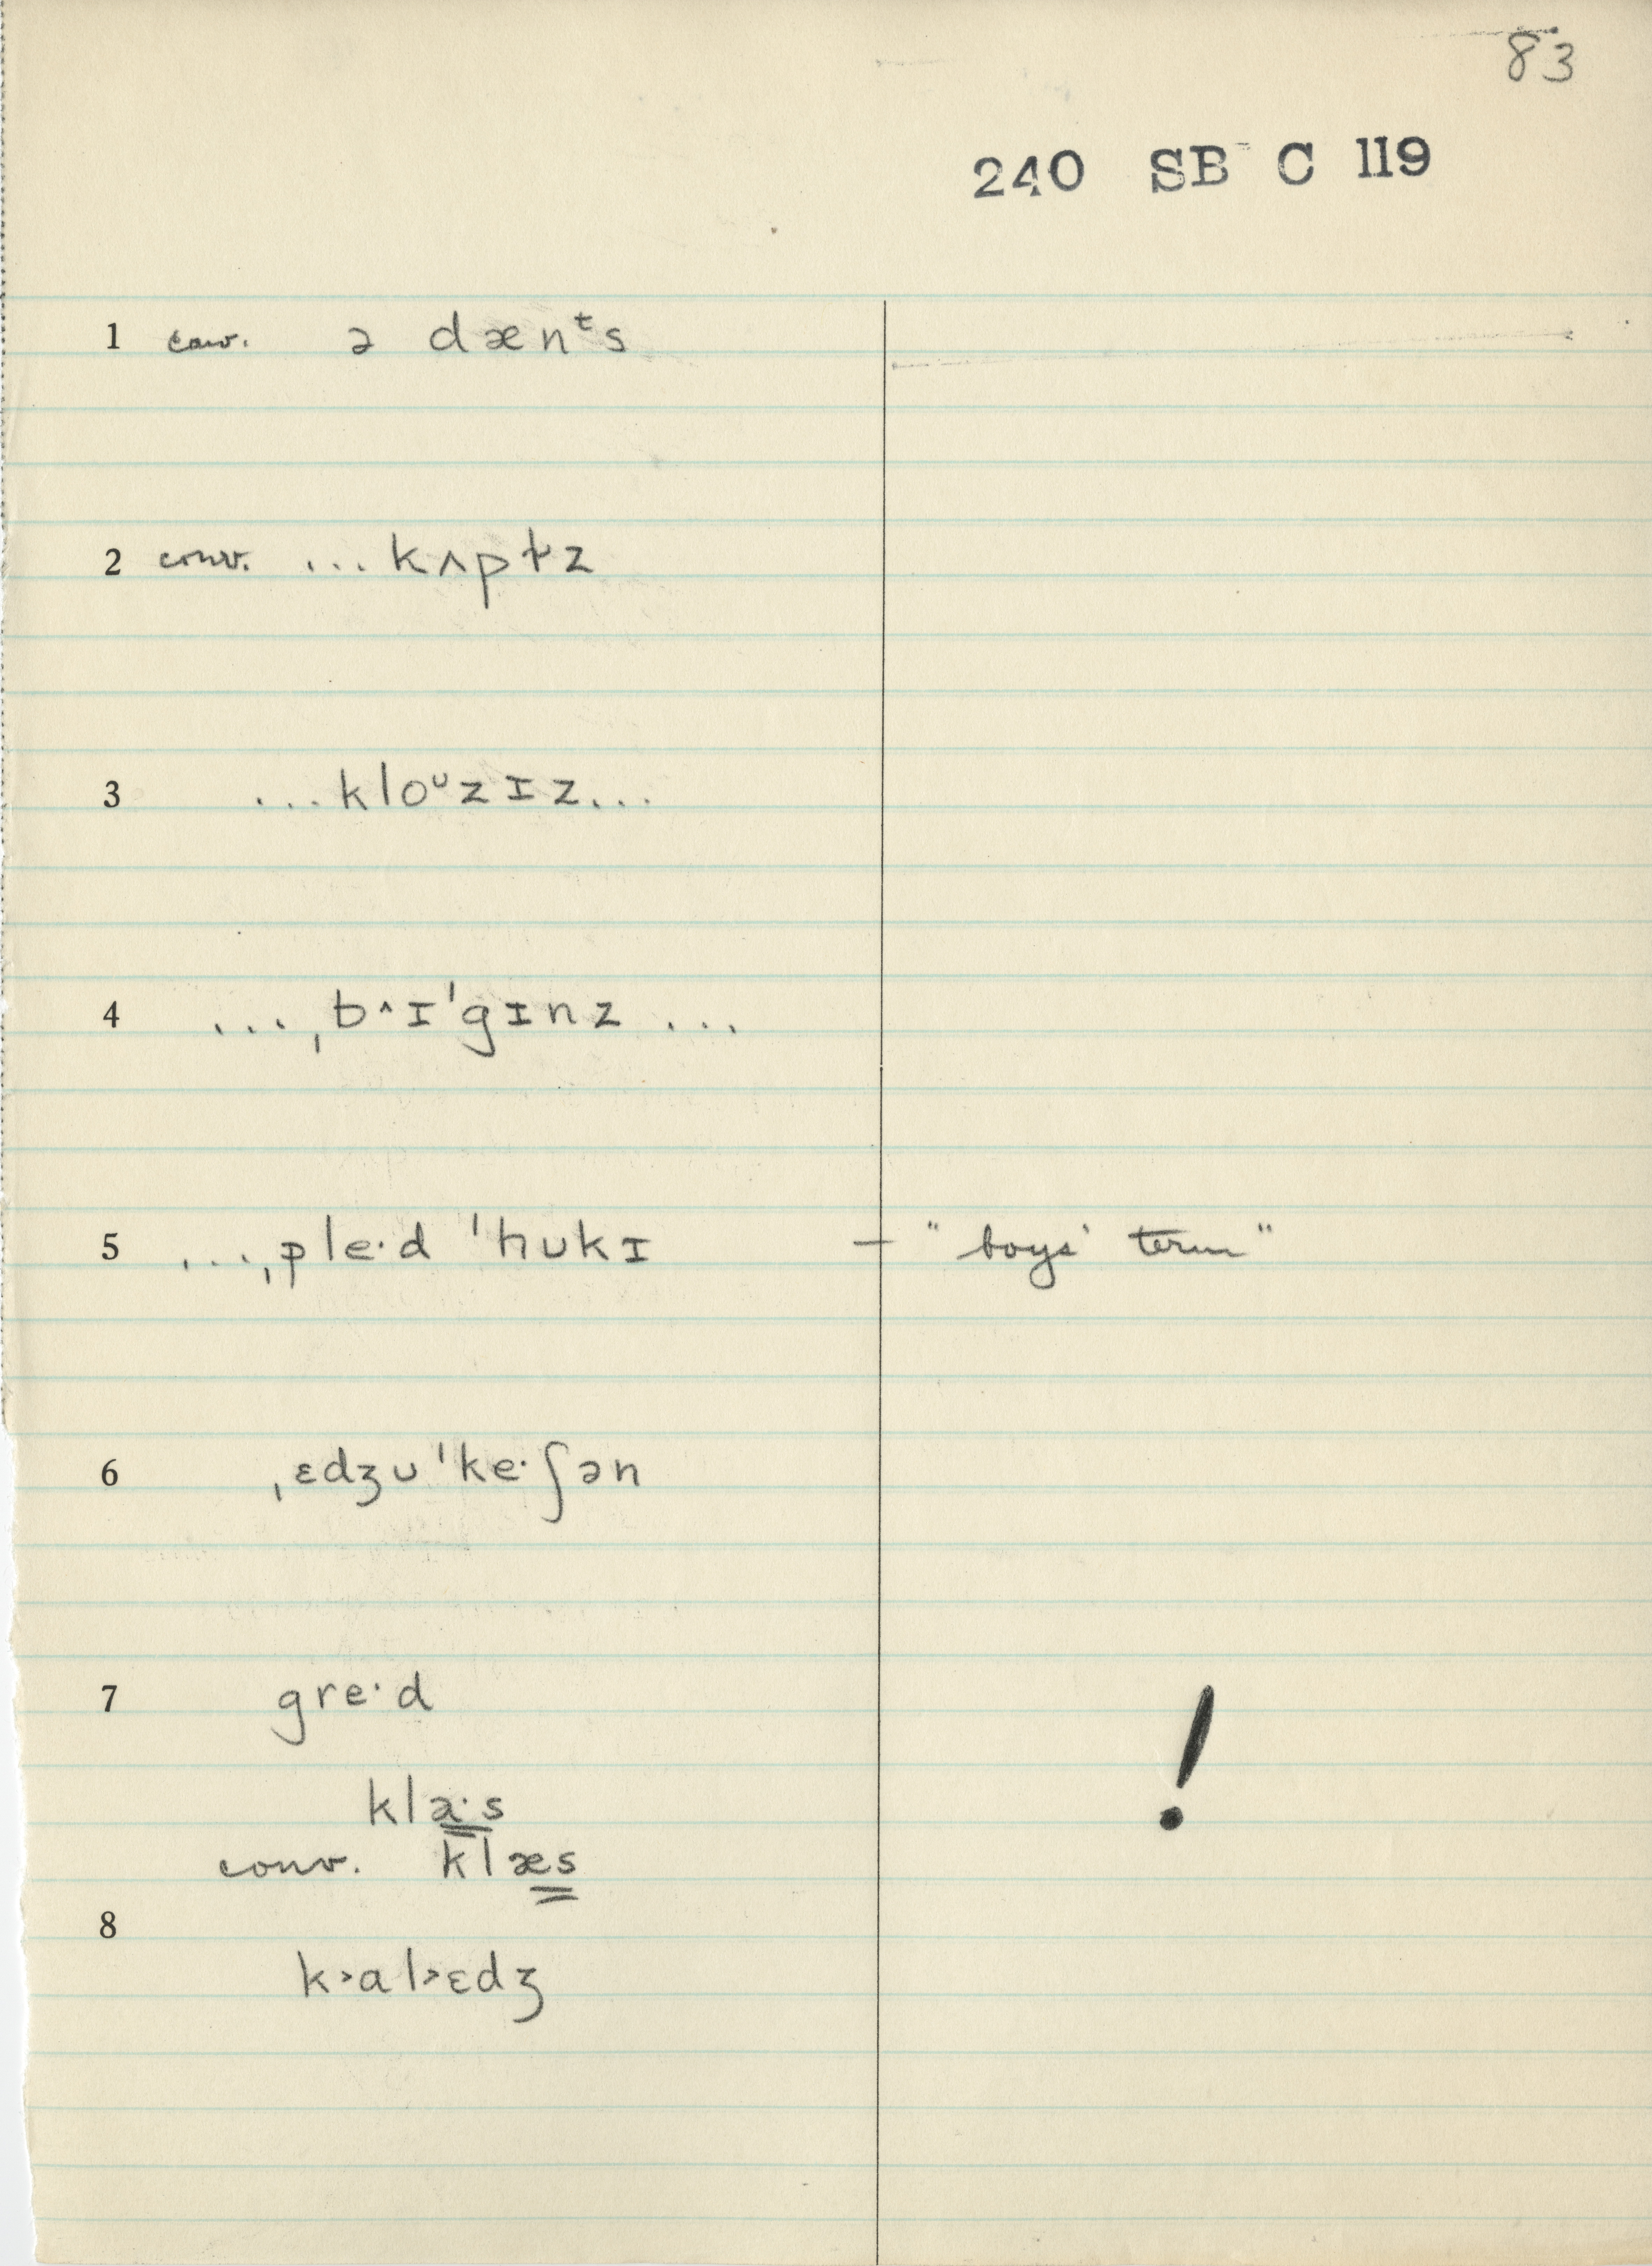 83
240 SB C 119
1 conv. ə dænᵗs
2 conv. ... kʌpɫz
3 ...kloᶷzɪz...
4 ...ˌb^ɪˈgɪnz ...
5 ...ˌple·d ˈhʊkɪ – "boys' term"
6 ˌɛdʒʊˈke·ʃən
7 gre·d
kla·s !
conv. klæs
8
k˃al˃ɛdʒ